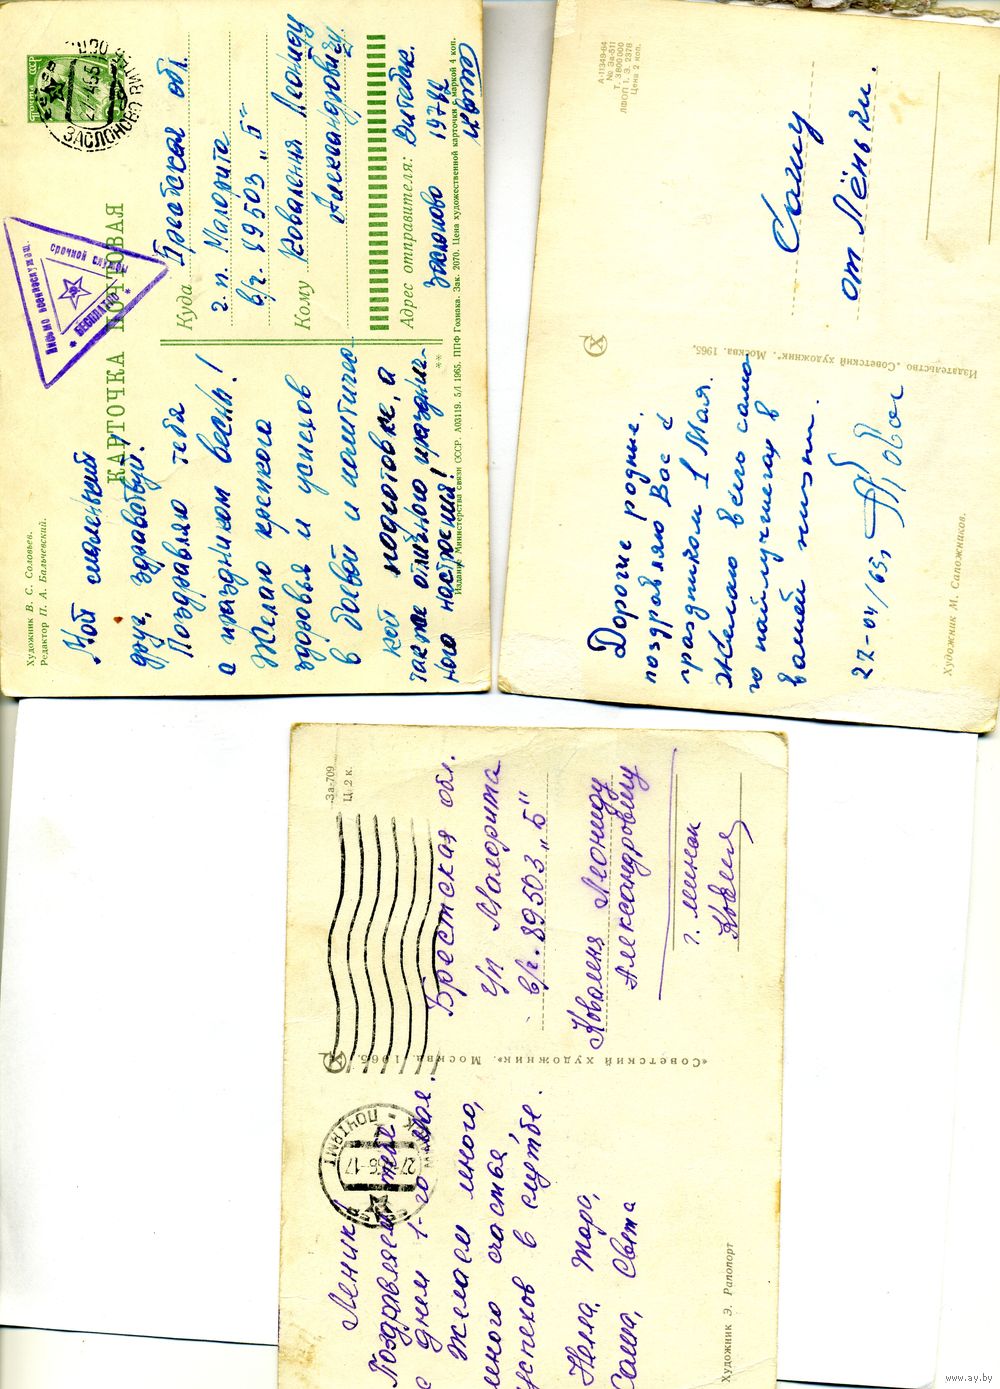 Художник В. С. Соловьев.
Редактор П. А. Бальчевский.
КАРТОЧКА ПОЧТОВАЯ
Почта СССР
ЗАСЛОНОВО
Письмо военнослужащ.
срочной службы
* БЕСПЛАТНО *
Мой маленький
друг, здравствуй!
Поздравляю тебя
с праздником весны!
Желаю крепкого
здоровья и успехов
в боевой и политичес-
кой подготовке, а
также отличного празднич-
ного настроения!
Куда
Брестская обл.
г. п. Малорита
в/г. 89503 „Б"
Кому
Коваленя Леониду
Александровичу.
Адрес отправителя: Витебск.
Заслоново
Издание Министерства связи СССР. А03119. 5/I 1965. ППФ Гознака. Зак. 2070. Цена художественной карточки с маркой 4 коп.
А-11349-64
№ За-511
Т. 3 800 000
ЛФОП 1. З. 2378
Цена 2 коп.
Сашу
от Лёньки.
Издательство „Советский художник". Москва. 1965.
Дорогие родные.
поздравляю Вас с
праздником 1 Мая.
Желаю всего само
го наилучшего в
вашей жизни.
27-04/65,
Художник М. Сапожников.
За-709
Ц. 2 к.
ПОЧТАМТ
Леник!
Поздравляем тебя
с днем 1-го мая.
Желаем много,
много счастья
успехов в службе.
Нелла, Жора,
Саша, Света
Брестская обл.
г/п Малорита
в/г. 89503 „Б"
Коваленя Леониду
Александровичу
г. Минск
«Советский художник». Москва. 1965.
Художник Э. Рапопорт
www.ay.by